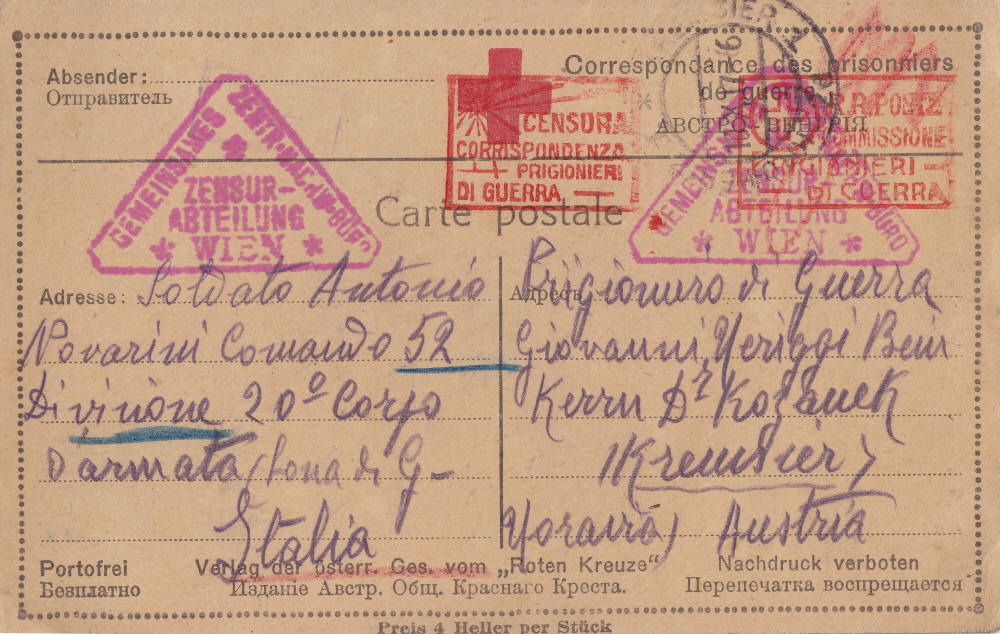 Absender:
Отправитель
Correspondance des prisonniers
de guerre
АВСТРО-ВЕНГРІЯ
GEMEINSAMES ZENTR.NACHW-BÜRO
ZENSUR-
ABTEILUNG
WIEN
CENSURA
CORRISPONDENZA
PRIGIONIERI
DI GUERRA
R.R. POSTE
COMMISSIONE
PRIGIONIERI
DI GUERRA
GEMEINSAMES BÜRO
ABTEILUNG
WIEN
Carte postale
Adresse: Soldato Antonio
Novarini Comando 52
Divisione 20º Corpo
D'armata (Zona di G-
Italia
Адресъ
Prigioniero di Guerra
Giovanni Beim
Herrn Dr Kožánek
(Kremsier)
Austria
Portofrei
Безплатно
Verlag der österr. Ges. vom „Roten Kreuze"
Изданіе Австр. Общ. Краснаго Креста.
Nachdruck verboten
Перепечатка воспрещается
Preis 4 Heller per Stück